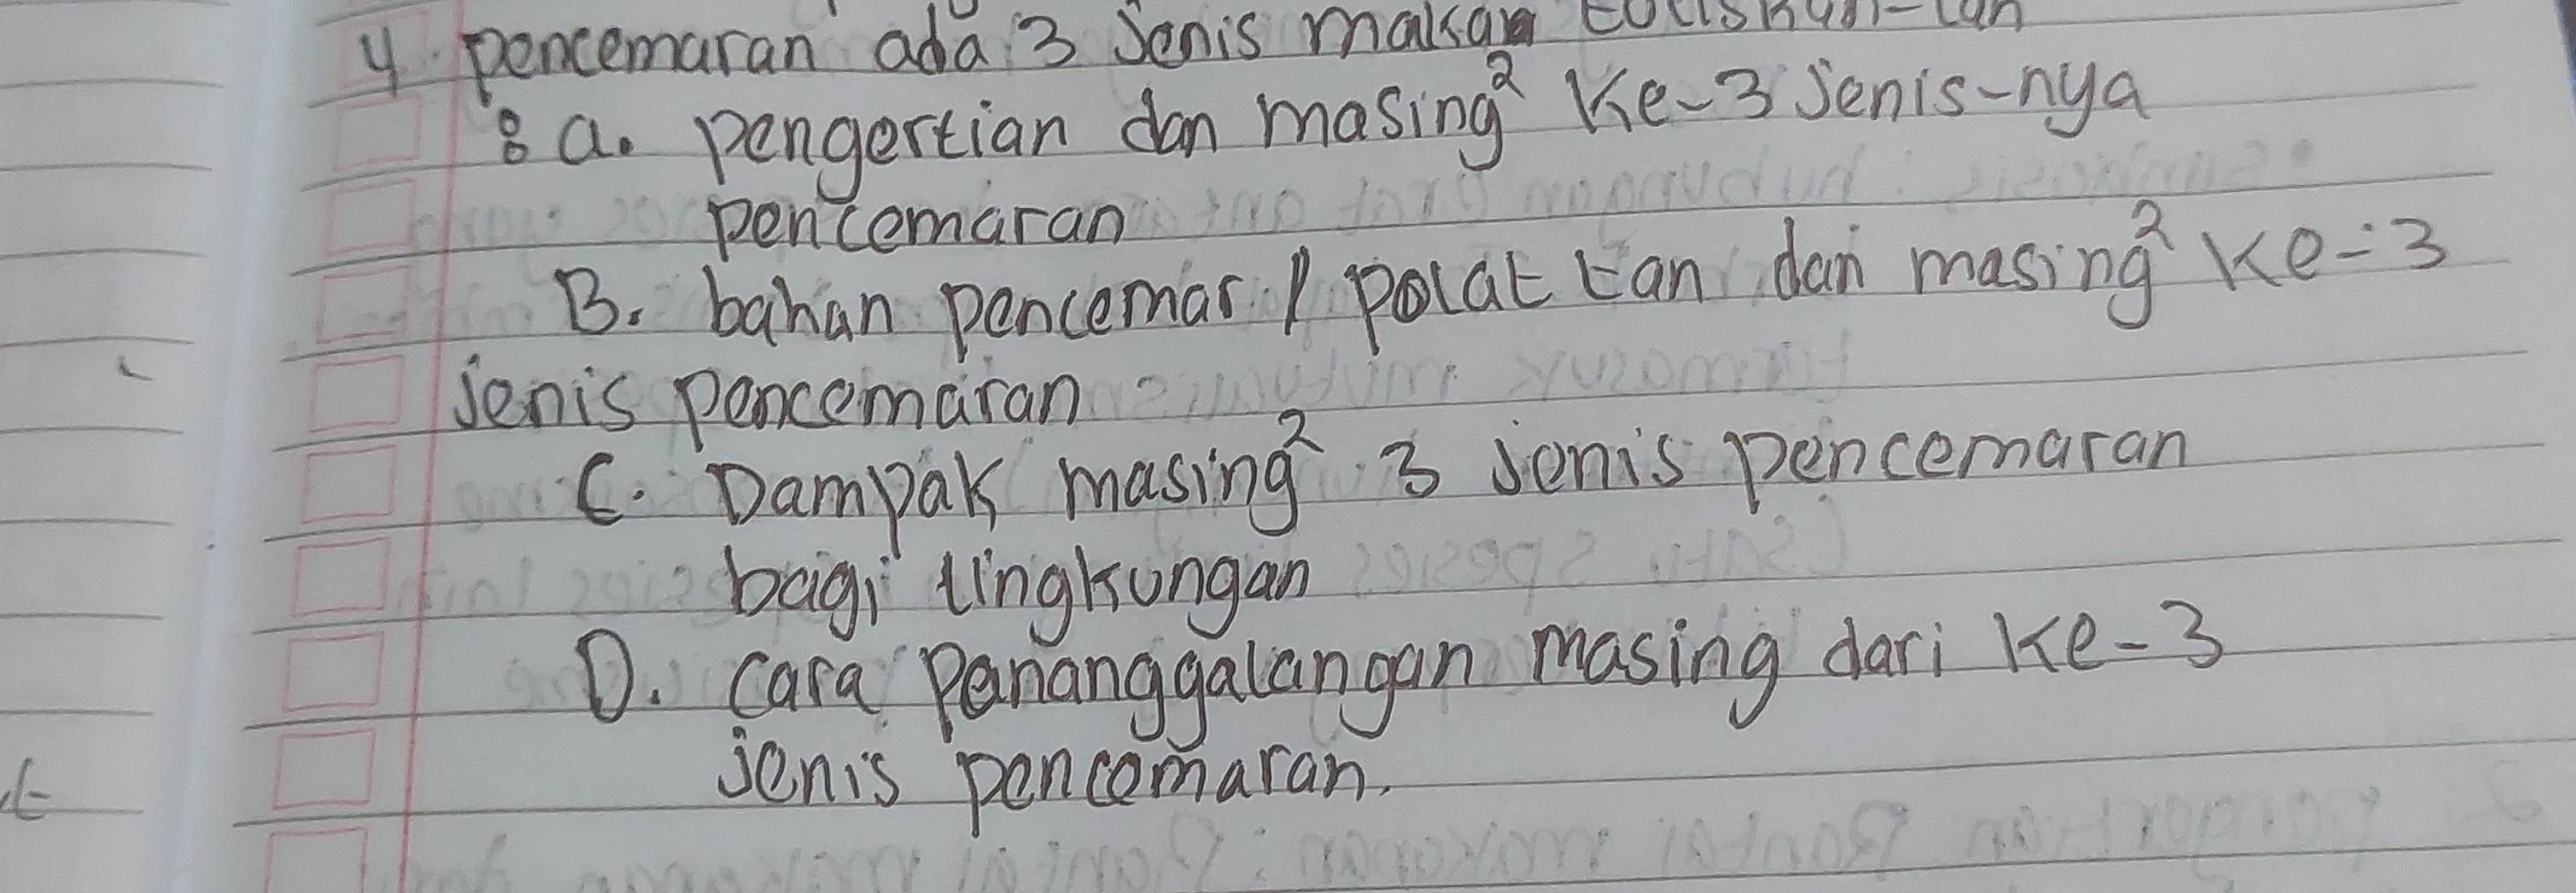 4. pencemaran ada 3 jenis makan tuliskan-lah
: a. pengertian dan masing² ke-3 jenis-nya
pencemaran
B. bahan pencemar / polat tan dari masing² ke-3
jenis pencemaran
C. Dampak masing² 3 jenis pencemaran
bagi lingkungan
D. cara pananggalangan masing dari ke-3
jenis pencemaran.